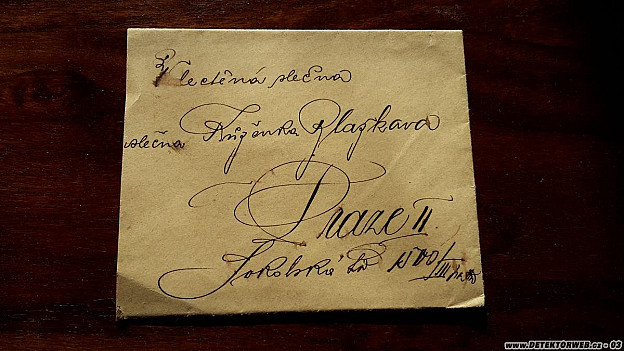 Vlectěná slečna
slečna Růženka Blažkova
Praze II.
Sokolská tř. 1800/III
www.DETEKTORWEB.cz - 03